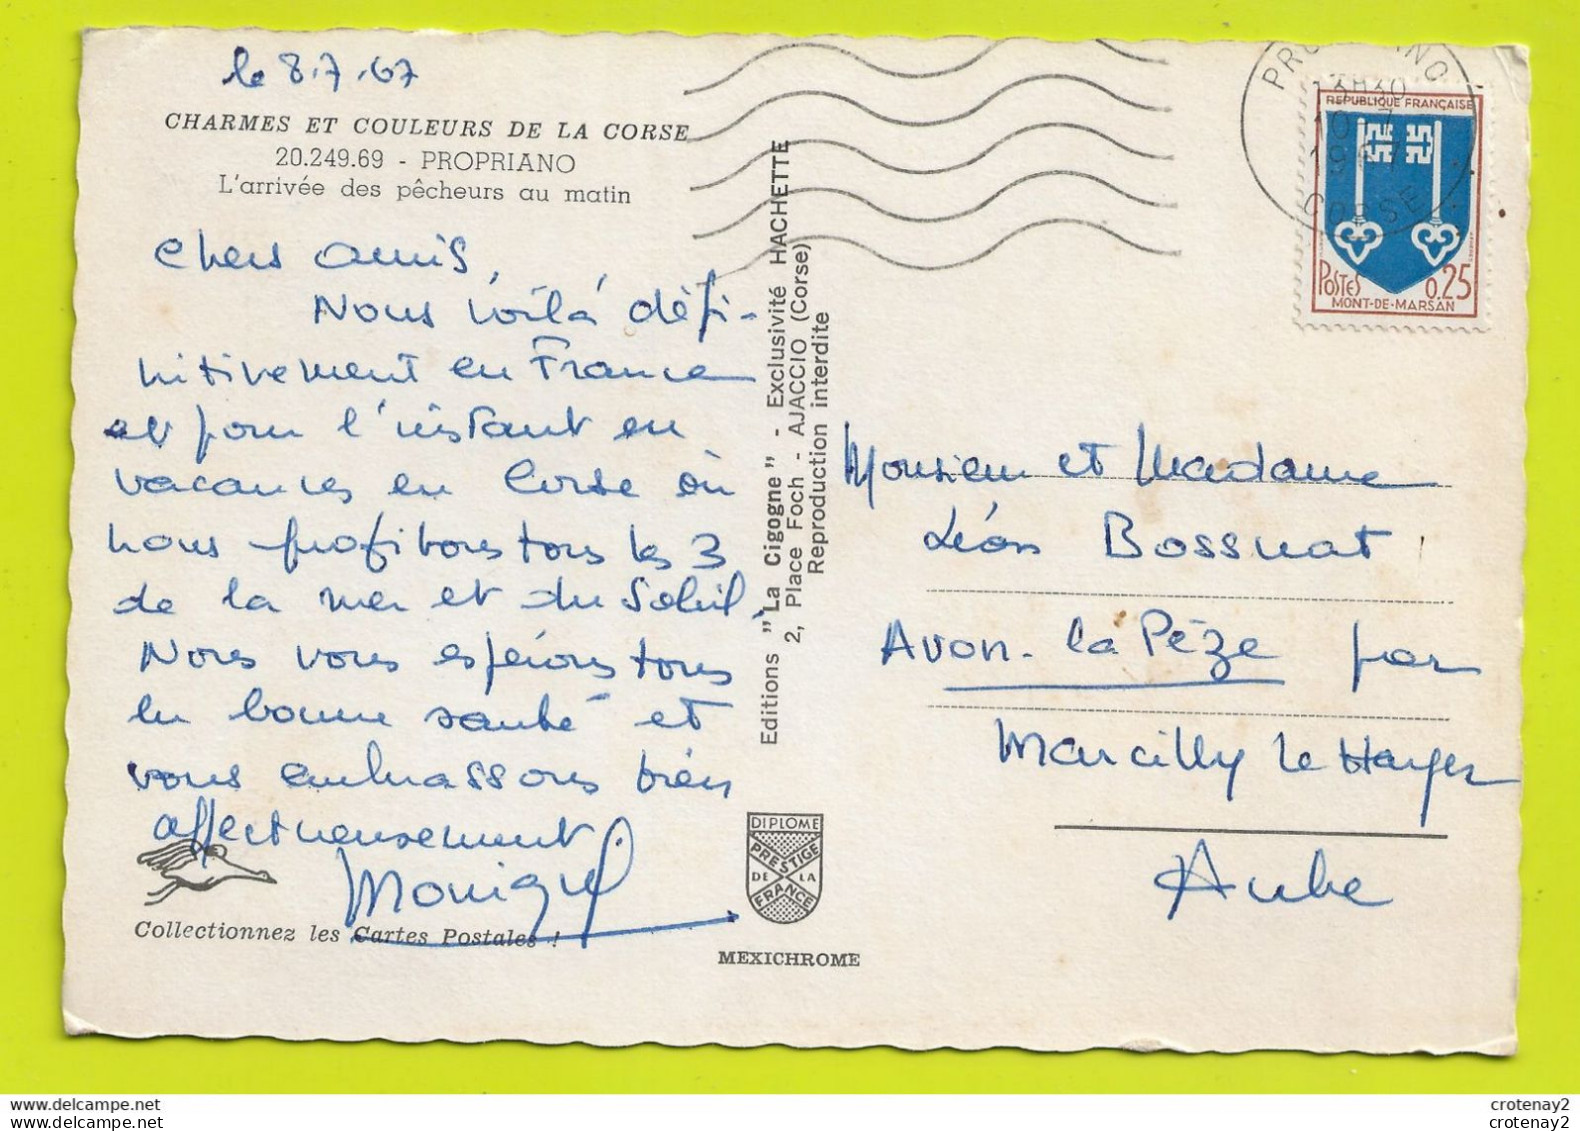 le 8.7.67
CHARMES ET COULEURS DE LA CORSE
20.249.69 - PROPRIANO
L'arrivée des pêcheurs au matin
Chers amis,
Nous voilà défi-
nitivement en France
et pour l'instant en
vacances en Corse où
nous profitons tous les 3
de la mer et du soleil.
Nous vous espérons tous
en bonne santé et
vous embrassons bien
affectueusement
Monique
Collectionnez les Cartes Postales !
Editions "La Cigogne" - Exclusivité HACHETTE
2, Place Foch - AJACCIO (Corse)
Reproduction interdite
DIPLOME
PRESTIGE
DE LA
FRANCE
MEXICHROME
PROPRIANO
13H30
10-7
1967
CORSE
REPUBLIQUE FRANÇAISE
POSTES 0.25
MONT-DE-MARSAN
Monsieur et Madame
Léon Bossuat
Avon-la Pèze par
Marcilly le Hayer
Aube
crotenay2
crotenay2